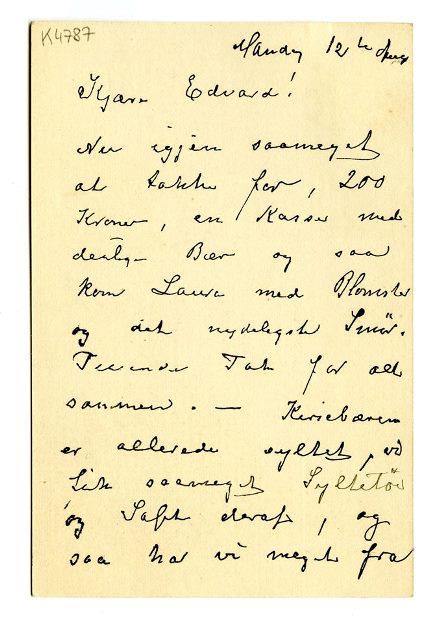 K4787
Mandag 12te Aug
Kjære Edvard!
Nu igjen saameget
at takke for, 200
Kroner, en Kasse med
deilige Bær og saa
kom Laura med Blomster
og det nydeligste Smör.
Tusende Tak for alt
sammen. — Kirsebærene
er allerede syltet,
saameget Syltetöi
og Saft deraf, og
saa har vi meget fra